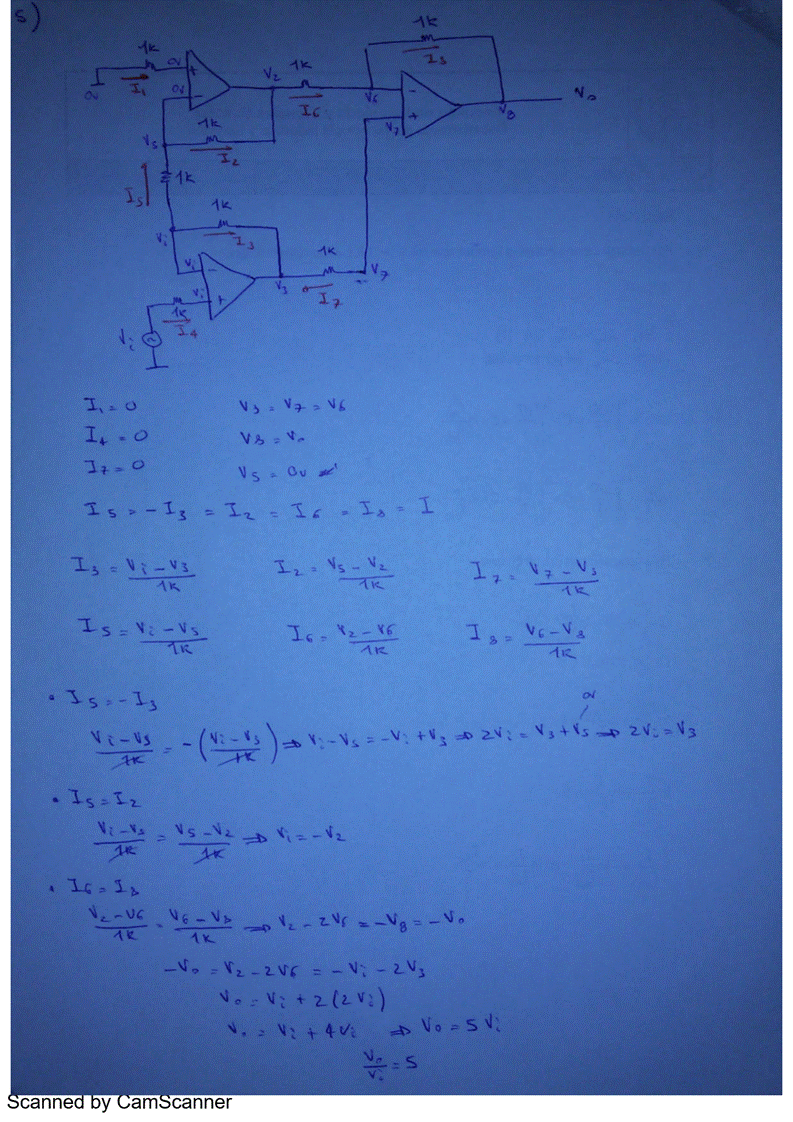 5)
1K
1K
0V
+
I₈
1K
V₂
0V
I₁
0V
-
I₆
V₆
-
V₀
V₈
V₇
+
1K
V₅
I₂
1K
I₅
1K
Vi
I₃
1K
Vi
-
V₇
V₃
Vi
+
I₇
1K
I₄
Vi
I₁ = 0 V₃ = V₇ = V₆
I₄ = 0 V₈ = V₀
I₇ = 0 V₅ = 0V
I₅ = -I₃ = I₂ = I₆ = I₈ = I
I₃ = Vi - V₃ / 1K I₂ = V₅ - V₂ / 1K I₇ = V₇ - V₃ / 1K
I₅ = Vi - V₅ / 1K I₆ = V₂ - V₆ / 1K I₈ = V₆ - V₈ / 1K
• I₅ = -I₃
0V
Vi - V₅ / 1K = -(Vi - V₃ / 1K) ⇒ Vi - V₅ = -Vi + V₃ ⇒ 2Vi = V₃ + V₅ ⇒ 2Vi = V₃
• I₅ = I₂
Vi - V₅ / 1K = V₅ - V₂ / 1K ⇒ Vi = -V₂
• I₆ = I₈
V₂ - V₆ / 1K = V₆ - V₈ / 1K ⇒ V₂ - 2V₆ = -V₈ = -V₀
-V₀ = V₂ - 2V₆ = -Vi - 2V₃
V₀ = Vi + 2(2Vi)
V₀ = Vi + 4Vi ⇒ V₀ = 5Vi
V₀ / Vi = 5
Scanned by CamScanner